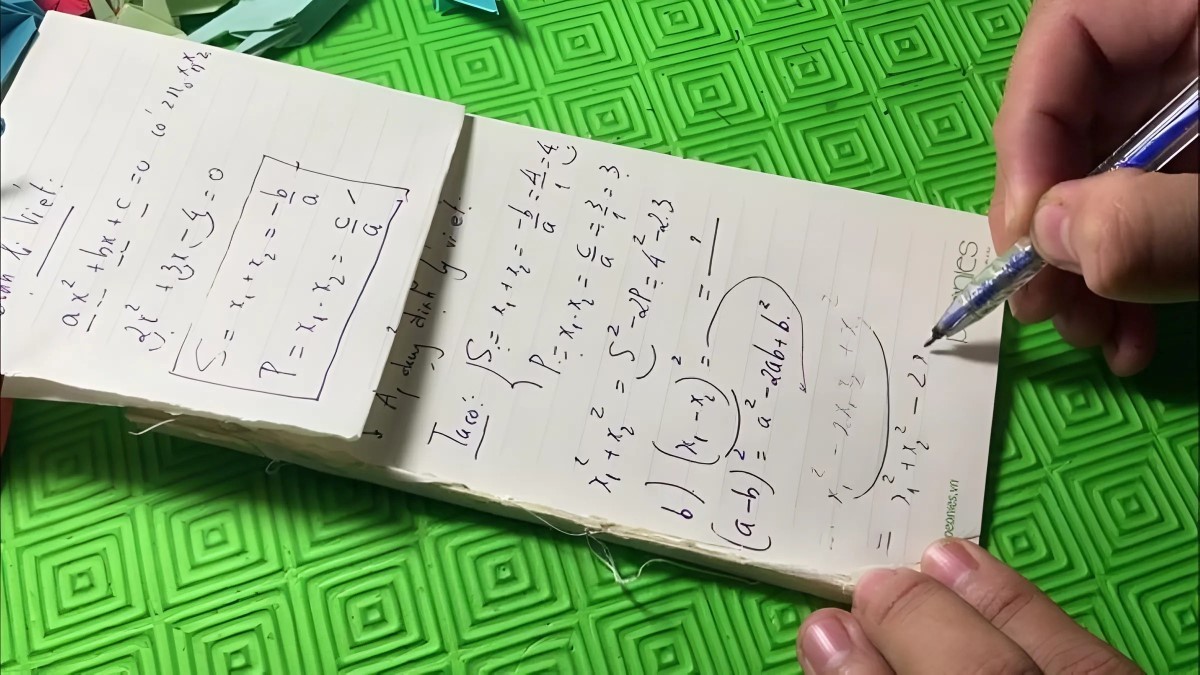 Viet:
ax² + bx + c = 0 có 2 n₀ x₁, x₂
3x² + 3x - 4 = 0
S = x₁ + x₂ = -b/a
P = x₁ . x₂ = c/a
Áp dụng định lý viet:
Ta có: S = x₁ + x₂ = -b/a = 4/1 = 4
P = x₁ . x₂ = c/a = 3/1 = 3
x₁² + x₂² = S² - 2P = 4² - 2.3
b) (x₁ - x₂)² = = ?
(a - b)² = a² - 2ab + b²
= x₁² - 2x₁x₂ + x₂²
= x₁² + x₂² - 2
peonies
peonies.vn